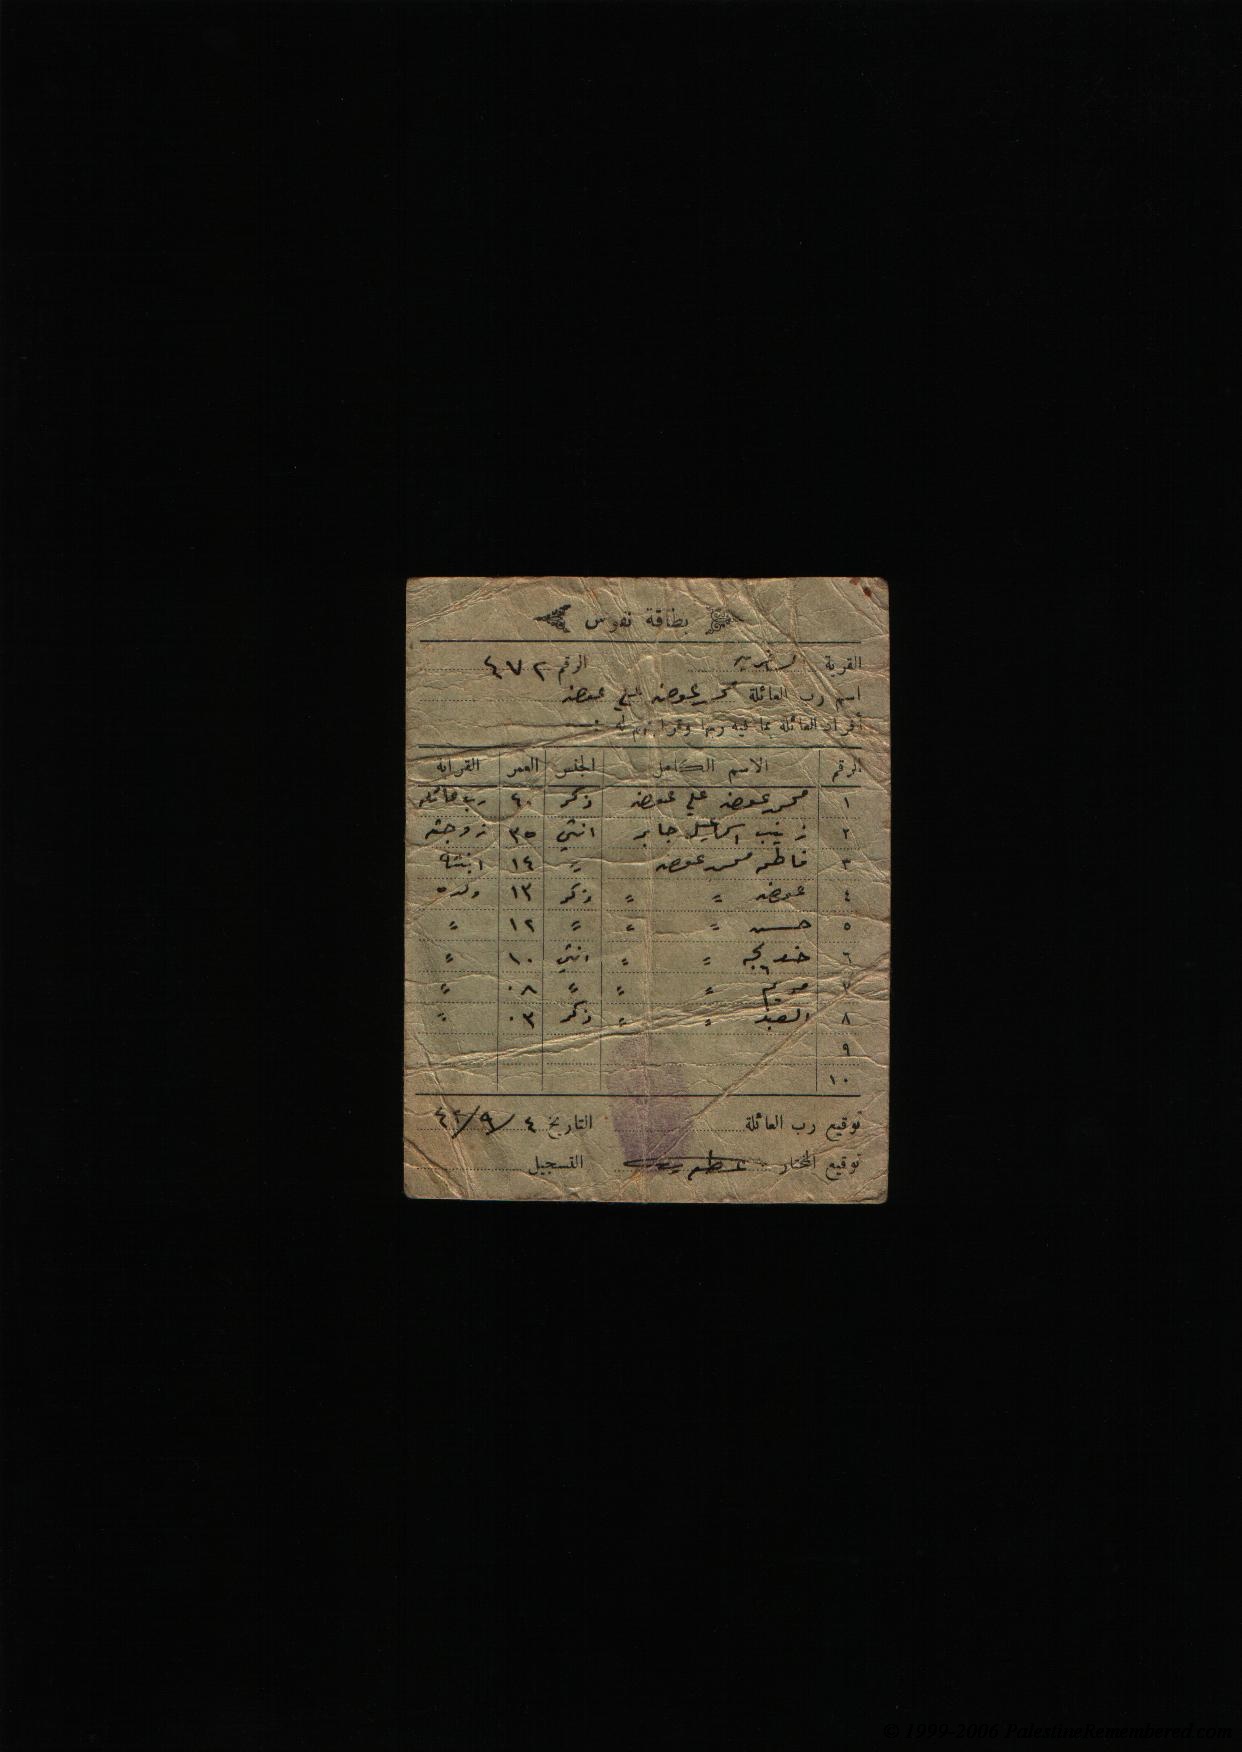 بطاقة نفوس
القرية السافرية الرقم ٤٧٢
اسم رب العائلة محمد عوض علي عوض
أفراد العائلة بما فيه ربها وقرابتهم له :
الرقم الاسم الكامل الجنس العمر القرابة
١ محمد عوض علي عوض ذكر ٤٠ رب عائله
٢ زينب اسماعيل جابر انثى ٣٥ زوجته
٣ فاطمه محمد عوض " ١٤ ابنته
٤ عوض " " ذكر ١٣ ولده
٥ حسن " " " ١٢ "
٦ خديجه " " انثى ١٠ "
٧ مريم " " " ٠٨ "
٨ العبد " " ذكر ٠٣ "
٩
١٠
توقيع رب العائلة التاريخ ٤/٩/٤٢
توقيع المختار التسجيل
© 1999-2006 PalestineRemembered.com